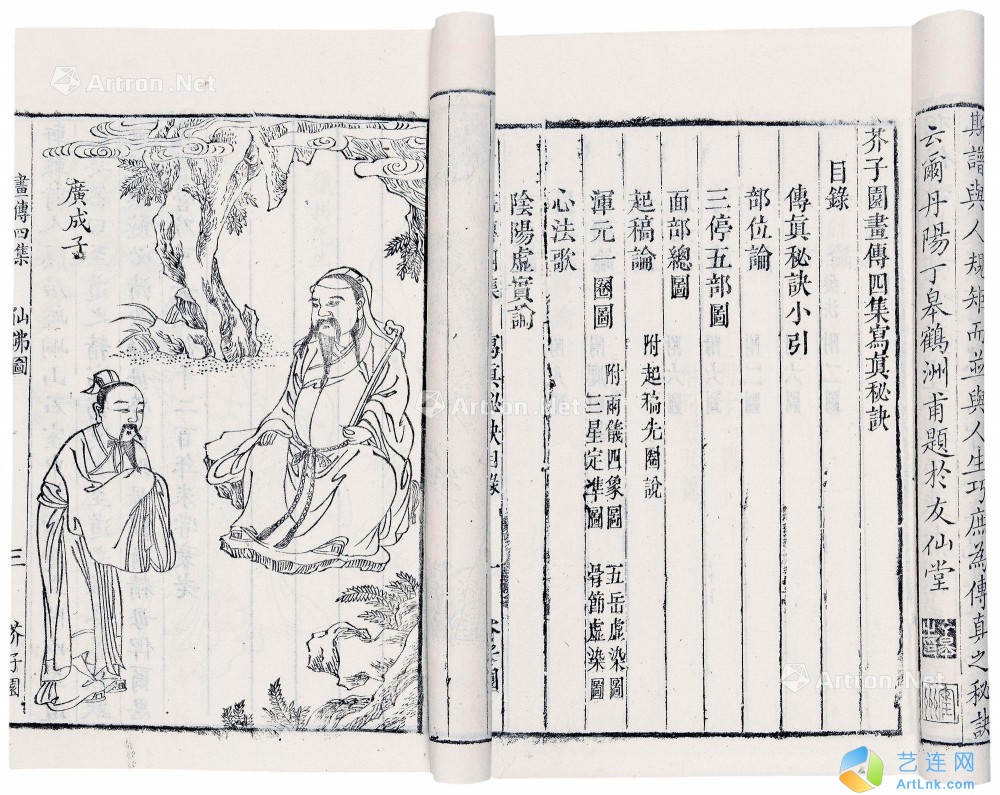 斯譜與人規矩而並與人生巧庶為傳真之秘訣
云爾丹陽丁皋鶴洲甫題於友仙堂
芥子園畫傳四集寫真秘訣
目錄
傳真秘訣小引
部位論
三停五部圖
面部總圖
起稿論 附起稿先圈說
渾元論圈圖 附兩儀四象圖 五岳虛染圖
三星定準圖 骨節虛染圖
心法歌
陰陽虛實論
寫真秘訣目錄
一
廣成子
畫傳四集
仙佛圖
三
芥子園
Artron.Net
Artron.Net
Artron.Net
Artron.Net
艺连网
ArtLnk.com